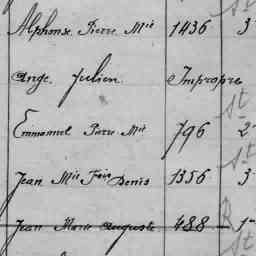 Alphonse Pierre Mie 1436 3
St
Ange Julien Impropre
St
Emmanuel Pierre Mie 796 2
St
Jean Mie Fois Denis 1356 3
Jean Marie Auguste 488 R 1
St